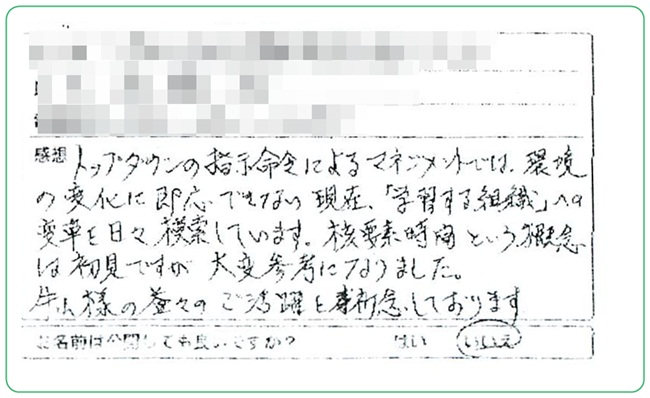 感想 トップダウンの指示命令によるマネジメントでは、環境
の変化に即応できない現在、「学習する組織」への
変革を日々模索しています。核要素時間という概念
は初見ですが大変参考になりました。
様の益々のご活躍を祈念しております
お名前は公開しても良いですか? はい いいえ